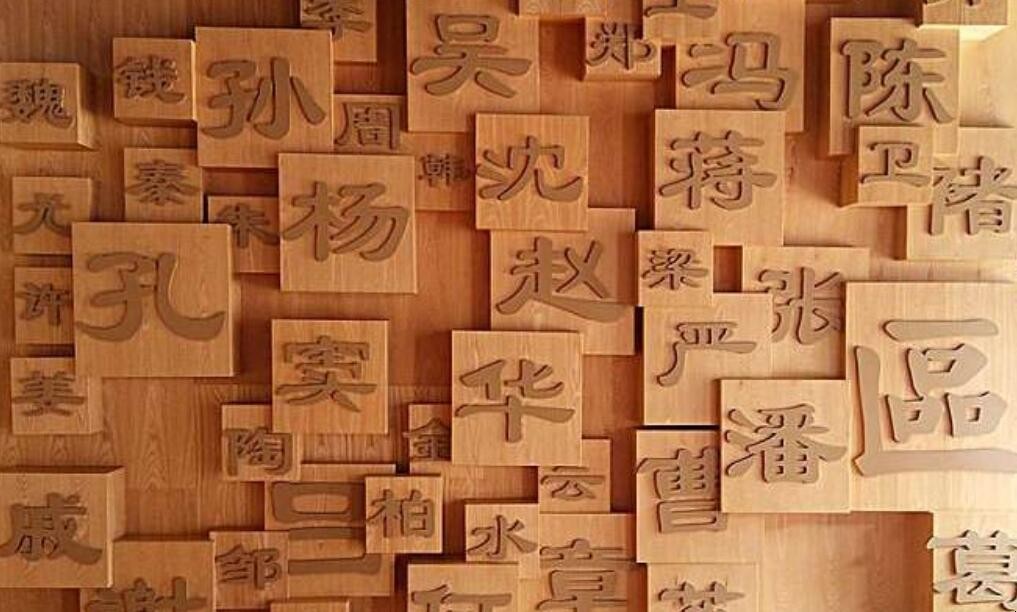 李
吴
郑
冯
陈
魏
钱
孙
周
韩
沈
蒋
卫
褚
秦
尤
朱
杨
孔
赵
梁
张
许
严
區
姜
窦
华
潘
陶
金
云
曹
戚
吕
柏
水
邹
章
葛
谢
何